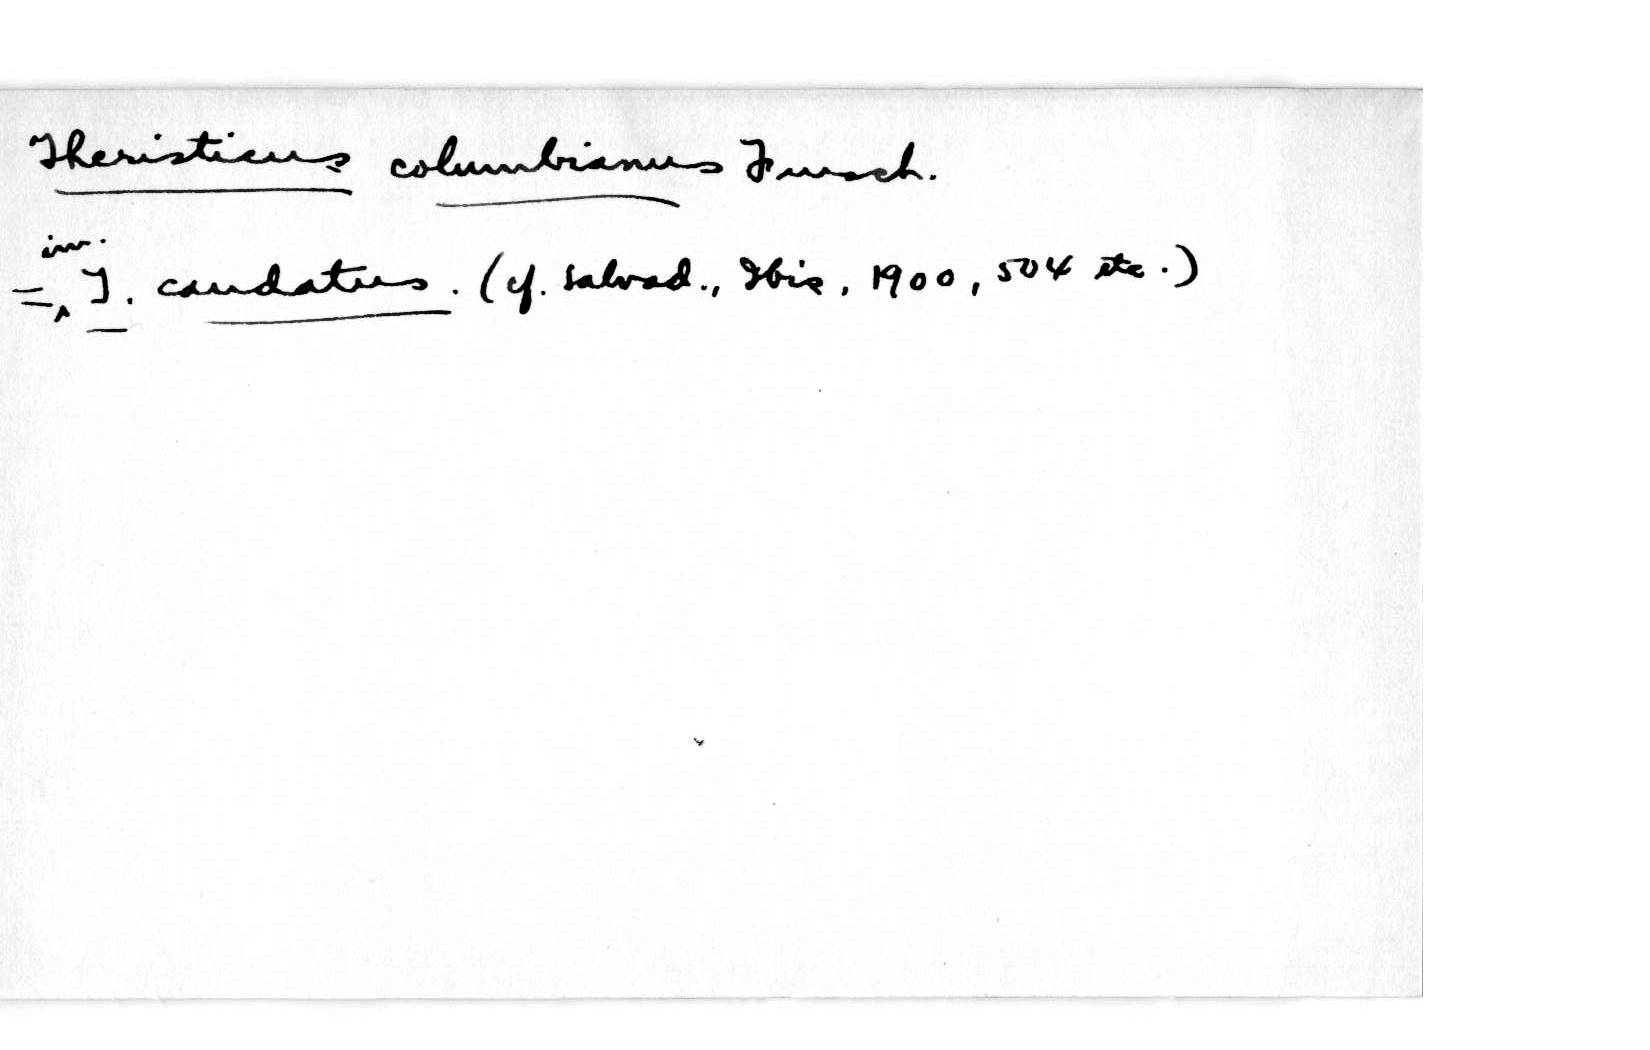 Theristicus columbianus Finsch.
inv.
= ‸ T. caudatus. (cf. Salvad., Ibis, 1900, 504 etc.)